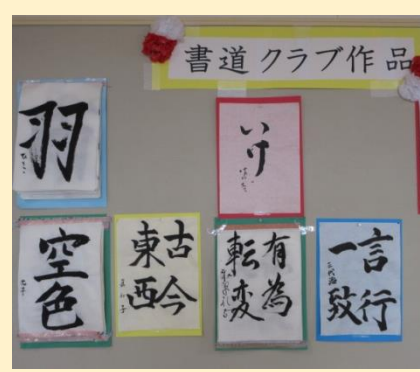 書道クラブ作品
羽
いけ
空色
古今
東西
有為
転変
言行
一致